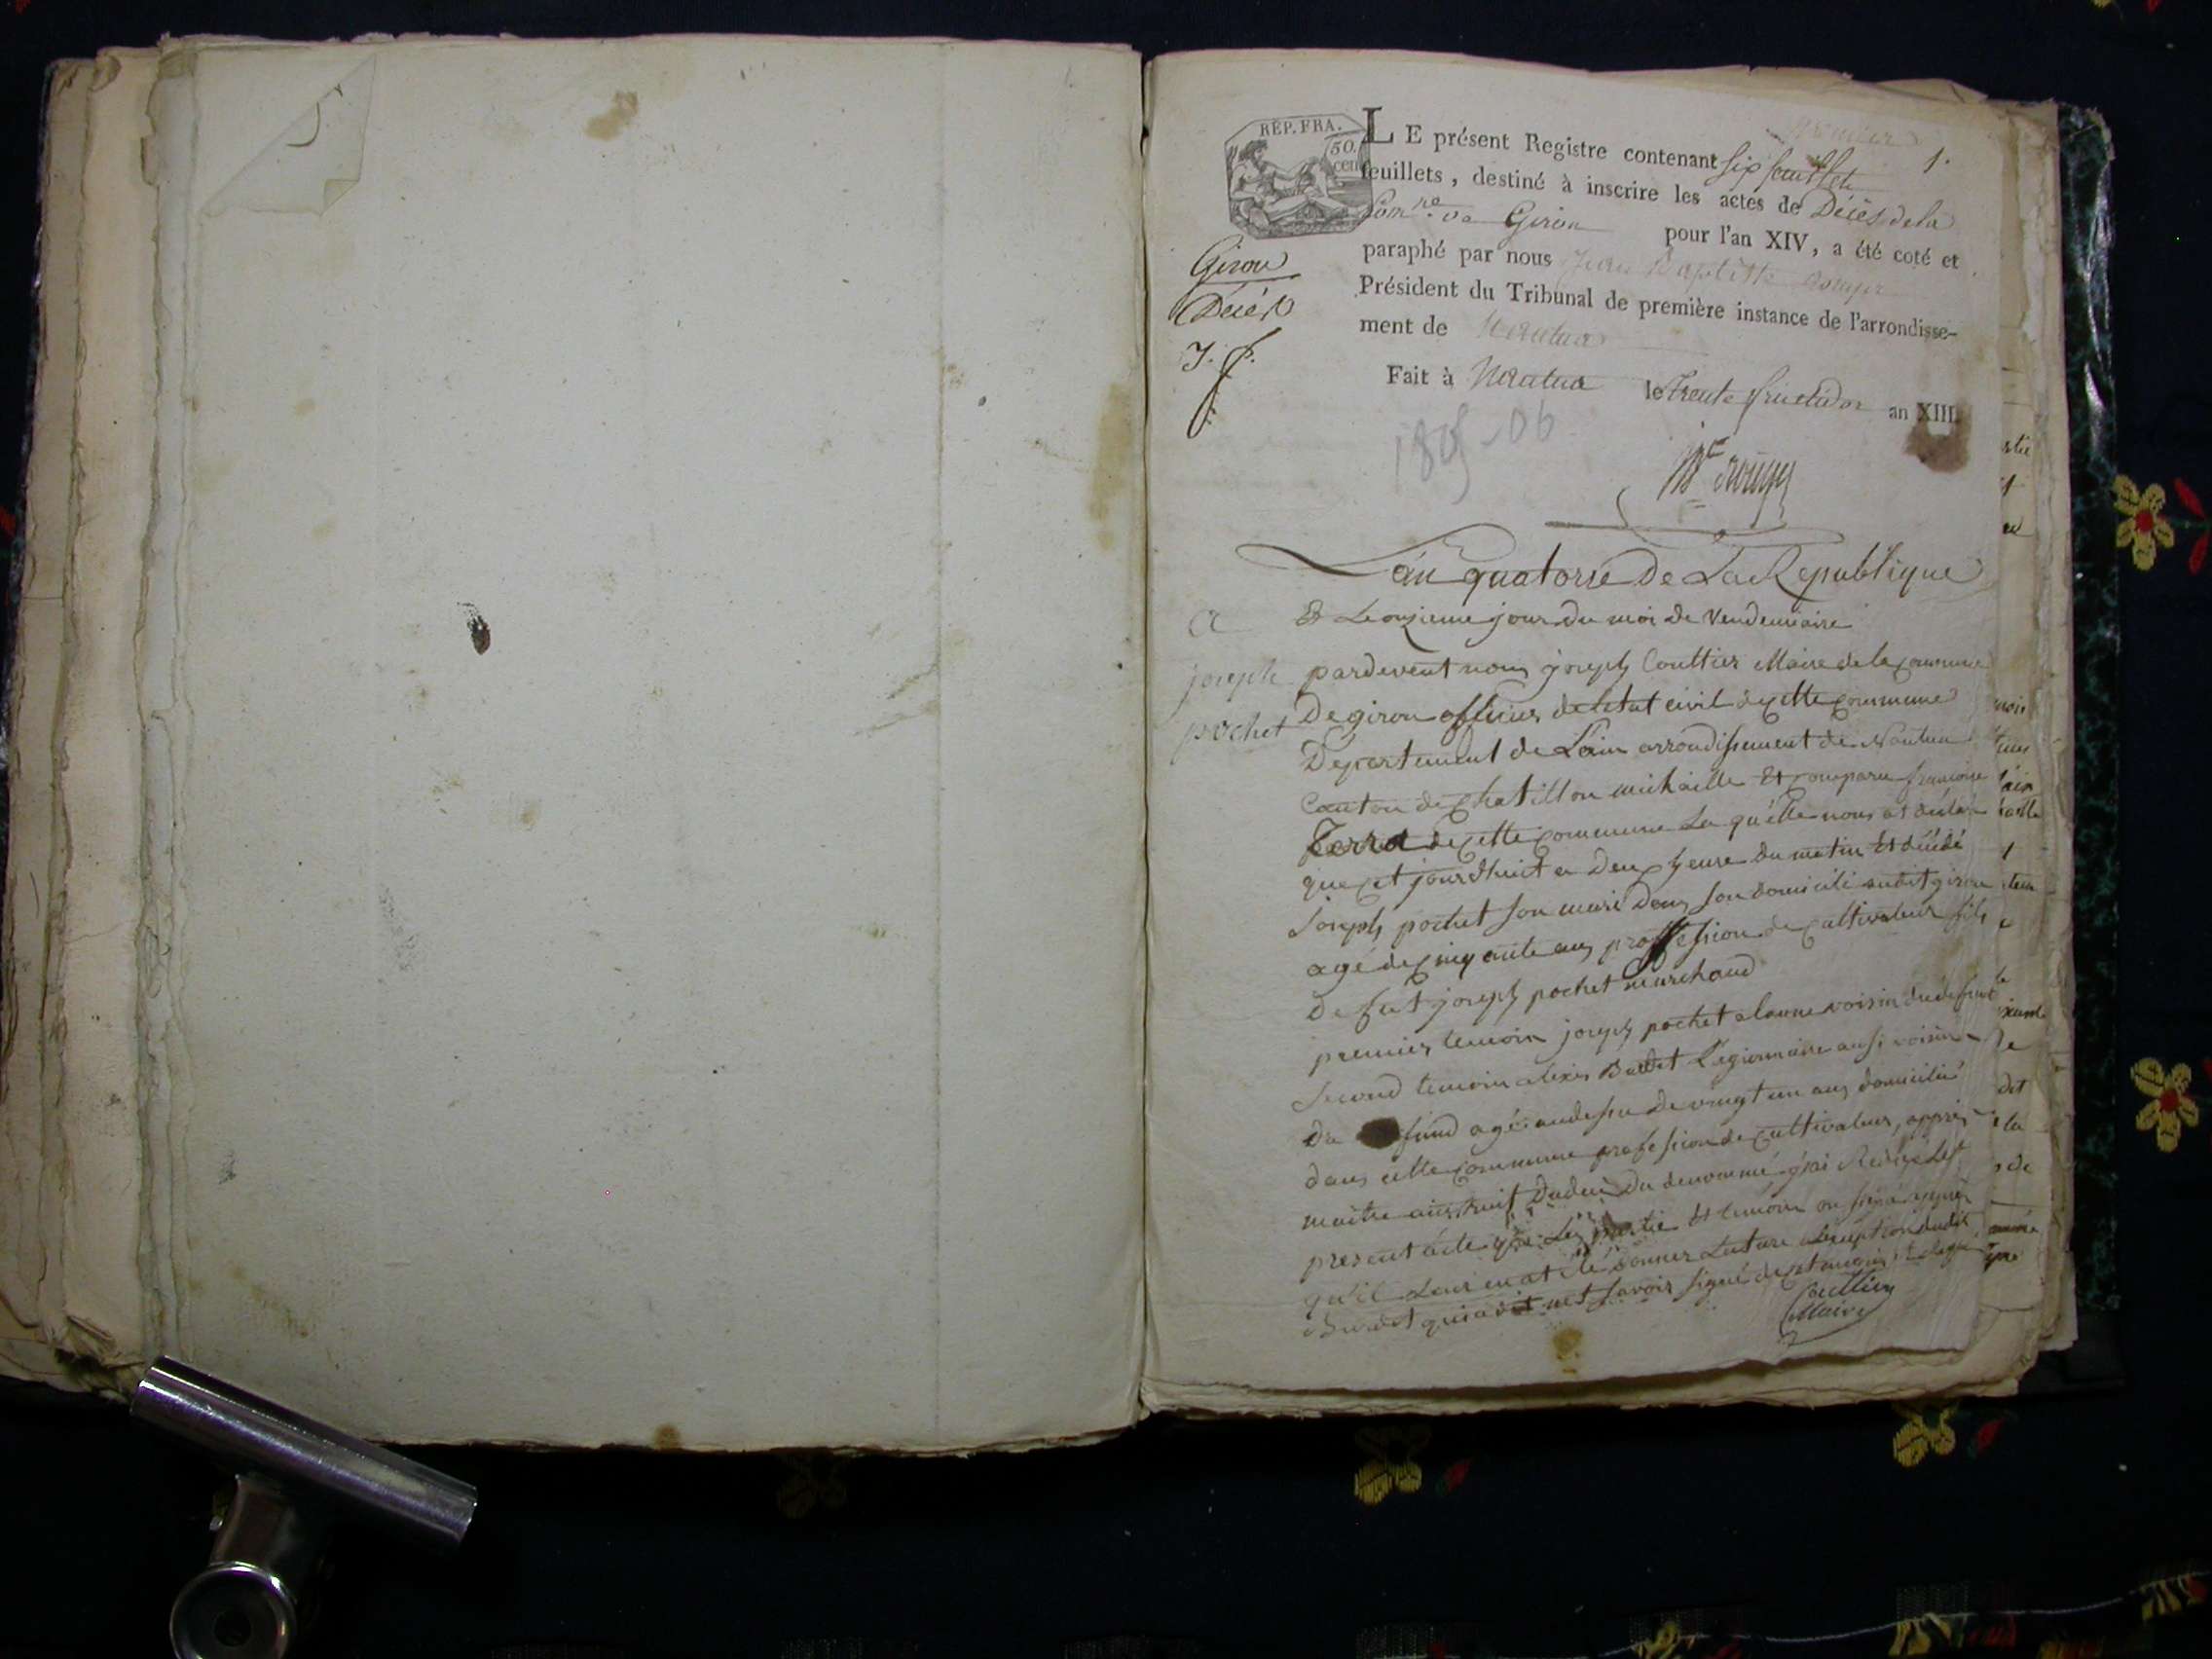 RÉP. FRA.
50.
cen
1.
LE présent Registre contenant six feuillets
feuillets, destiné à inscrire les actes de Décès de la
Comne de Giron pour l'an XIV, a été coté et
paraphé par nous Jean Baptiste Rouyer
Président du Tribunal de première instance de l'arrondisse-
ment de Nantua
Fait à Nantua le Trente fructidor an XIII.
Giron
Décès
1805-06
L'an quatorse De La Republique
Et Le onzieme jour du moi de Vendemiaire
joseph
pochet
pardevent nous joseph Couttier Maire de la commune
De giron officier de letat civil de cette commune
Departement de Lain arrondissement de Nantua
Canton de Chatillon michaille Et comparu francoise
de cette commune La quelle nous at déclaré
que cet jourdhuit a Deux heure du matin Et décédé
Joseph pochet son mari Dans son domicile audit giron
agé de cinquante ans proffession de cultivateur fils
De fut joseph pochet marchand
premier temoin joseph pochet alaune voisin du defunt
Second temoin alexis Burdet Legionnaire ausi voisin
Du fund agé audessu de vingt un ans domicilié
dans cette commune profession de cultivateur, apprés
maitre ainstruit Dudeu Du denommé j'ai Redigé Le
present acte que Les partie Et temoin on signé apprés
qu'il Leur en at été Donner Lecture a l'exeption dudit
Burdet qui a dit net savoir signé de
Couttier
Maire